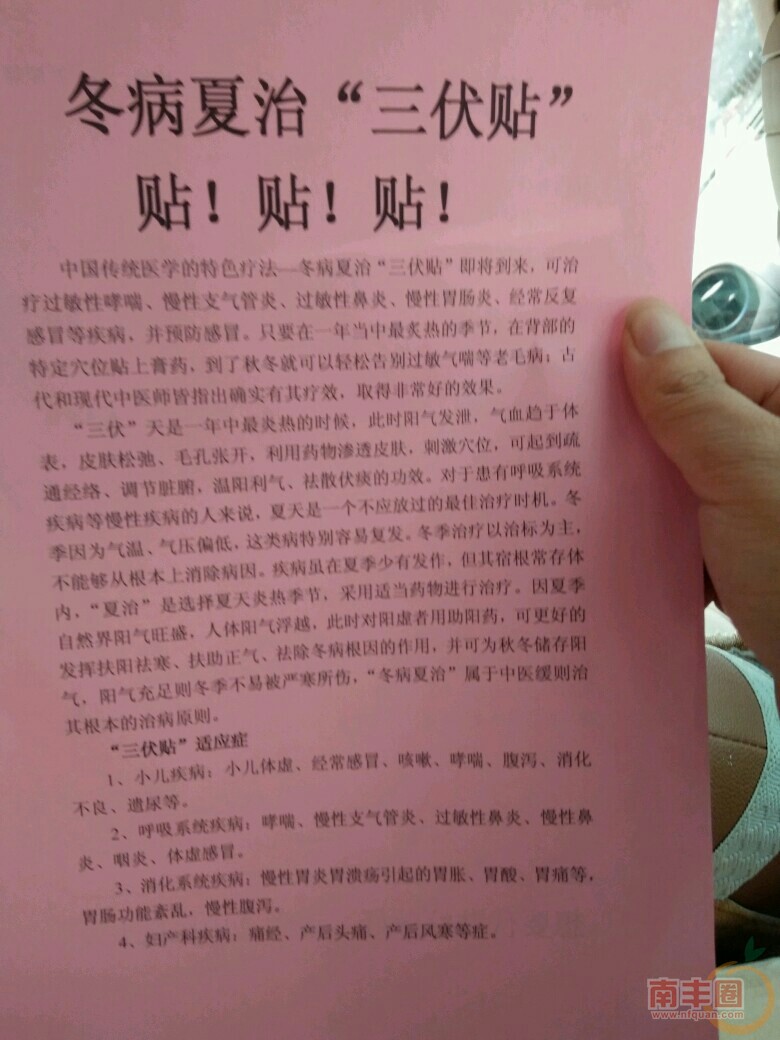 冬病夏治“三伏贴”
贴！贴！贴！
中国传统医学的特色疗法—冬病夏治“三伏贴”即将到来，可治
疗过敏性哮喘、慢性支气管炎、过敏性鼻炎、慢性胃肠炎、经常反复
感冒等疾病，并预防感冒。只要在一年当中最炙热的季节，在背部的
特定穴位贴上膏药，到了秋冬就可以轻松告别过敏气喘等老毛病；古
代和现代中医师皆指出确实有其疗效，取得非常好的效果。
“三伏”天是一年中最炎热的时候，此时阳气发泄，气血趋于体
表，皮肤松弛、毛孔张开，利用药物渗透皮肤，刺激穴位，可起到疏
通经络、调节脏腑，温阳利气、祛散伏痰的功效。对于患有呼吸系统
疾病等慢性疾病的人来说，夏天是一个不应放过的最佳治疗时机。冬
季因为气温、气压偏低，这类病特别容易复发。冬季治疗以治标为主，
不能够从根本上消除病因。疾病虽在夏季少有发作，但其宿根常存体
内，“夏治”是选择夏天炎热季节，采用适当药物进行治疗。因夏季
自然界阳气旺盛，人体阳气浮越，此时对阳虚者用助阳药，可更好的
发挥扶阳祛寒、扶助正气、祛除冬病根因的作用，并可为秋冬储存阳
气，阳气充足则冬季不易被严寒所伤，“冬病夏治”属于中医缓则治
其根本的治病原则。
“三伏贴”适应症
1、小儿疾病：小儿体虚、经常感冒、咳嗽、哮喘、腹泻、消化
不良、遗尿等。
2、呼吸系统疾病：哮喘、慢性支气管炎、过敏性鼻炎、慢性鼻
炎、咽炎、体虚感冒。
3、消化系统疾病：慢性胃炎胃溃疡引起的胃胀、胃酸、胃痛等，
胃肠功能紊乱，慢性腹泻。
4、妇产科疾病：痛经、产后头痛、产后风寒等症。
南丰圈
www.nfquan.com